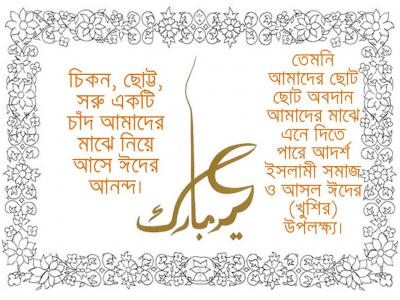 চিকন, ছোট্ট,
সরু একটি
চাঁদ আমাদের
মাঝে নিয়ে
আসে ঈদের
আনন্দ।
عيد مبارك
তেমনি
আমাদের ছোট
ছোট অবদান
আমাদের মাঝে
এনে দিতে
পারে আদর্শ
ইসলামী সমাজ
ও আসল ঈদের
(খুশির)
উপলক্ষ্য।